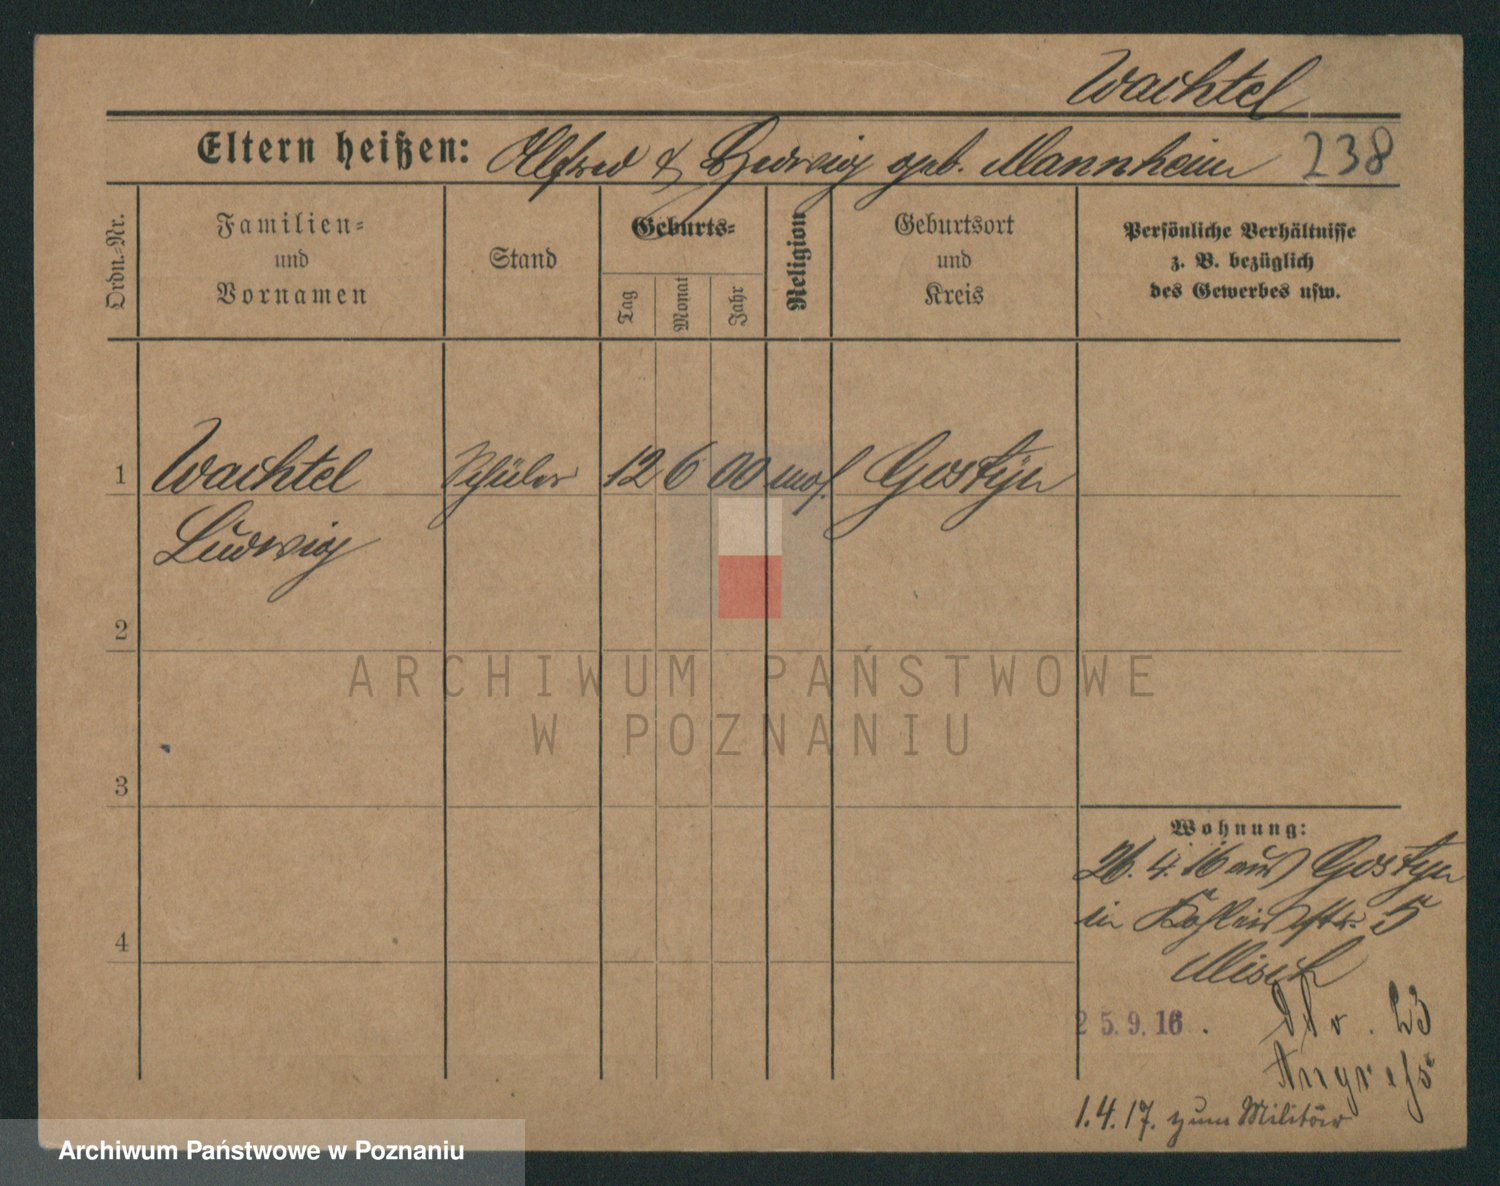 Wachtel
Eltern heißen: Alfred & Hedwig geb. Mannheim 238
Ordn.-Nr.
Familien-
und
Vornamen
Stand
Geburts-
Tag
Monat
Jahr
Religion
Geburtsort
und
Kreis
Persönliche Verhältnisse
z. B. bezüglich
des Gewerbes usw.
1 Wachtel Schüler 12 6 00 mos. Gostyn
Ludwig
2
3
4
Wohnung:
26.4.16 aus Gostyn
in str. 5
Misch
25.9.16. 23
Angress
1.4.17. zum Militär
ARCHIWUM PAŃSTWOWE
W POZNANIU
Archiwum Państwowe w Poznaniu